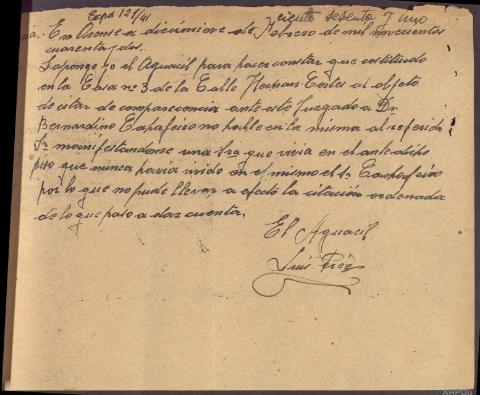 Exp. 121/41
ciento sesenta y uno
En Orense a diecinueve de Febrero de mil novecientos
cuarenta y dos.
yo el Aguacil para hacer constar que constituido
en la Casa nº 3 de la Calle Hernan Cortes al objeto
de citar de comparecencia ante este Juzgado a Dn
Bernardino no halle en la misma al referido
Sr manifestandome una Sra que vivia en el antedicho
piso que nunca havia vivido en el mismo el Sr
por lo que no pude llevar a efecto la citación ordenada
de lo que paso a dar cuenta.
El Aguacil
Luis